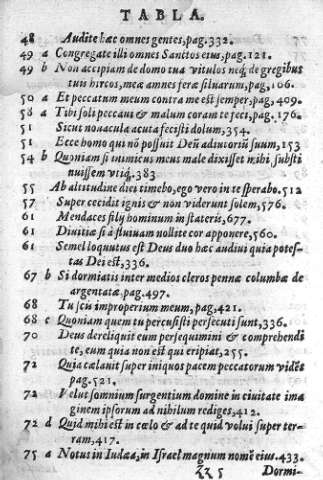 TABLA.
48 Audite hæc omnes gentes, pag. 332.
49 a Congregate illi omnes Sanctos eius, pag. 121.
49 b Non accipiam de domo tua vitulos neq; de gregibus
tuis hircos, meæ amnes feræ siluarum, pag, 106.
50 a Et peccatum meum contra me est semper, pag, 409.
58 a Tibi soli peccaui & malum coram te feci, pag. 176.
51 Sicut nouacula acuta fecisti dolum, 354.
51 Ecce homo qui nō possuit Deū adiutoriū suum, 153
54 b Quoniam si inimicus meus male dixisset mihi, substi
nuissem vtiq̃. 383
55 Ab altitudine diei timebo, ego vero in te sperabo. 512
57 Super cecidit ignis & non viderunt solem, 576.
61 Mendaces filij hominum in stateris, 677.
61 Diuitiæ si à fluiuam nollite cor apponere, 560.
61 Semel loquutus est Deus duo hæc audiui quia potes-
tas Dei est, 336.
67 b Si dormiatis inter medios cleros pennæ columbæ de
argentatæ, pag. 497.
68 Tu scis improperium meum, pag, 421.
68 c Quoniam quem tu percusisti persecuti sunt, 336.
70 Deus dereliquit eum persequimini & comprehendi
te, eum quia non est qui eripiat, 255.
72 Quia cælauit super iniquos pacem peccatorum vidēs
pag. 521.
72 Velut somnium surgentium domine in ciuitate ima
ginem ipsorum ad nihilum rediges, 412.
72 d Quid mihi est in cœlo & ad te quid volui super ter-
ram, 417.
75 a Notus in Iudæa, in Israel magnum nomē eius. 433.
Dormi-